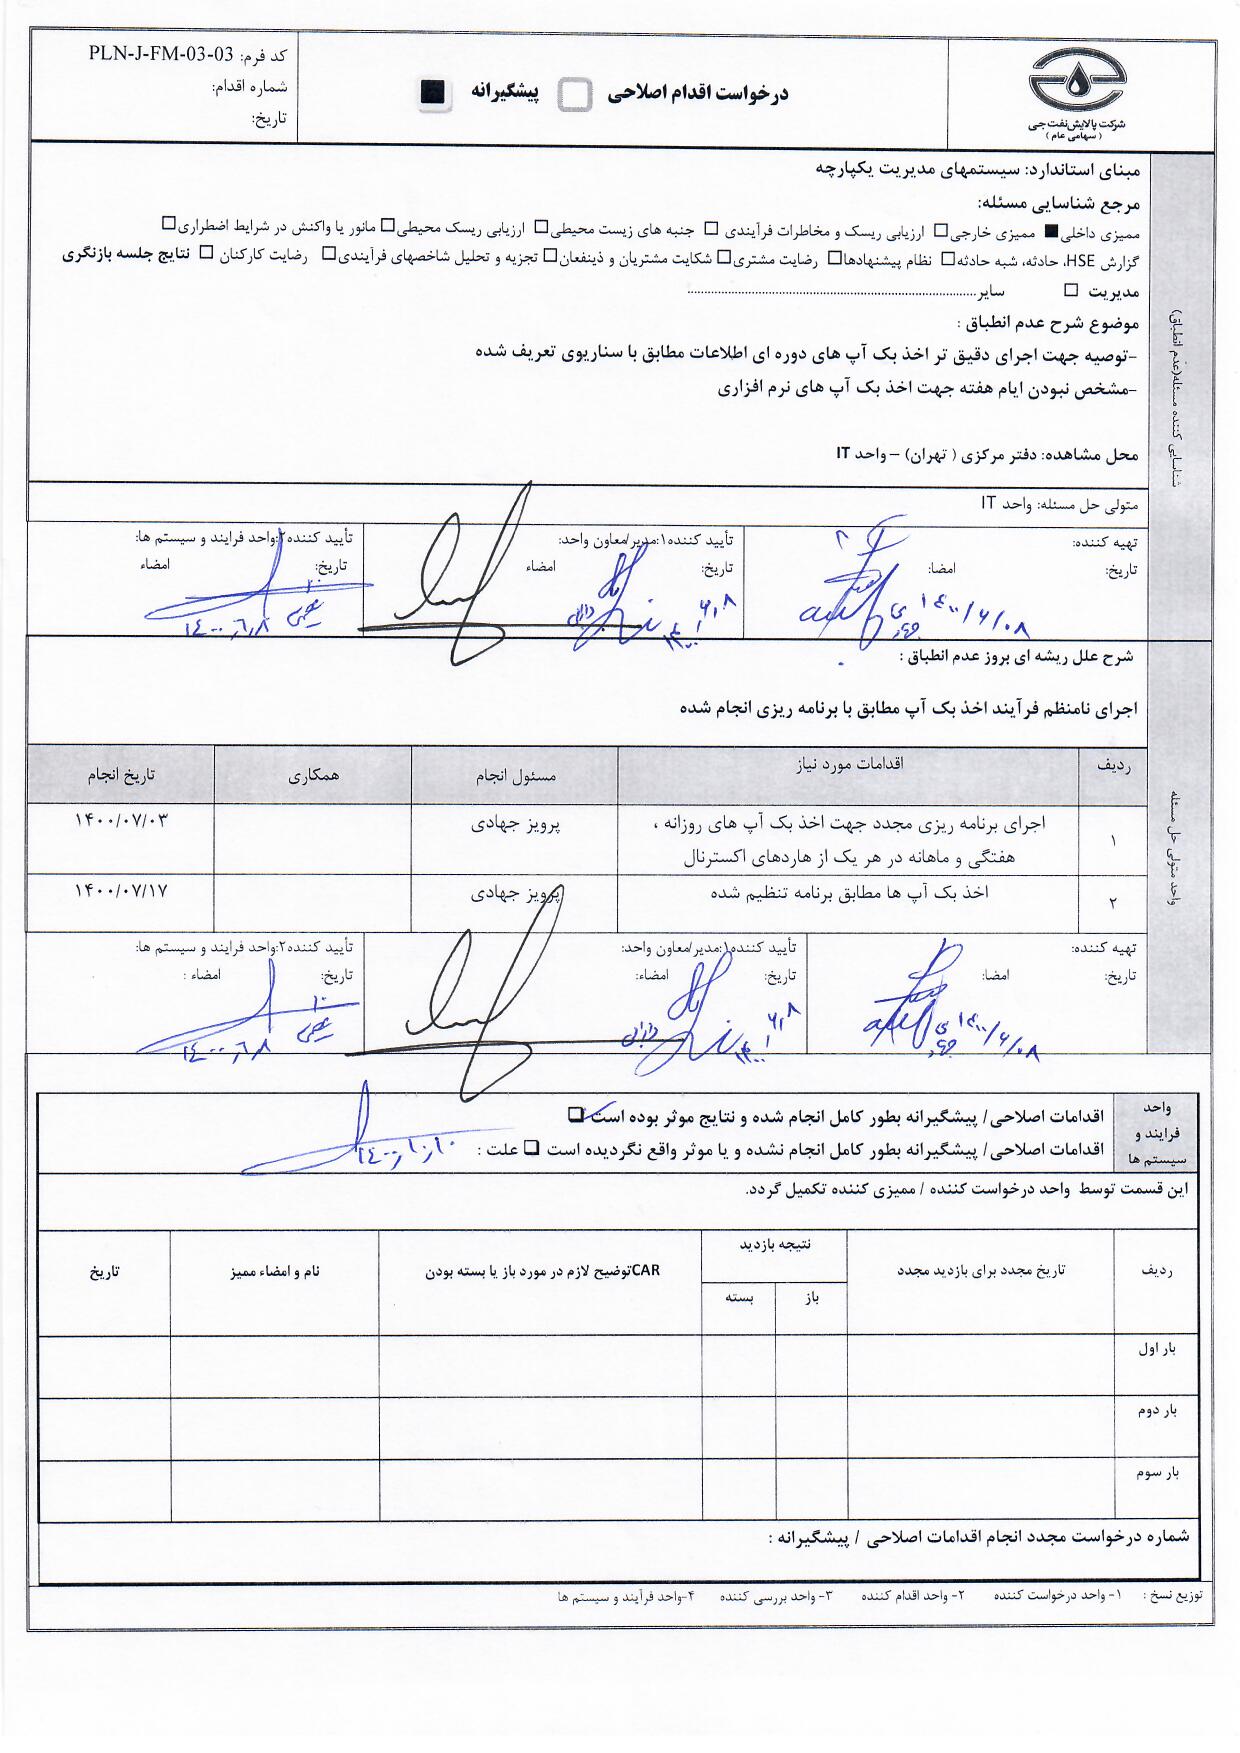 شرکت پالایش نفت جی
( سهامی عام )
درخواست اقدام اصلاحی □ پیشگیرانه ■
کد فرم: PLN-J-FM-03-03
شماره اقدام:
تاریخ:
شناسایی کننده مسئله(عدم انطباق)
مبنای استاندارد: سیستمهای مدیریت یکپارچه
مرجع شناسایی مسئله:
ممیزی داخلی■ ممیزی خارجی□ ارزیابی ریسک و مخاطرات فرآیندی □ جنبه های زیست محیطی□ ارزیابی ریسک محیطی□ مانور یا واکنش در شرایط اضطراری□
گزارش HSE، حادثه، شبه حادثه□ نظام پیشنهادها□ رضایت مشتری□ شکایت مشتریان و ذینفعان□ تجزیه و تحلیل شاخصهای فرآیندی□ رضایت کارکنان □ نتایج جلسه بازنگری
مدیریت □ سایر...............................................................................
موضوع شرح عدم انطباق :
-توصیه جهت اجرای دقیق تر اخذ بک آپ های دوره ای اطلاعات مطابق با سناریوی تعریف شده
-مشخص نبودن ایام هفته جهت اخذ بک آپ های نرم افزاری
محل مشاهده: دفتر مرکزی ( تهران) – واحد IT
متولی حل مسئله: واحد IT
تهیه کننده:
تاریخ: امضا:
۱۴۰۰/۶/۰۸
تأیید کننده۱:مدیر/معاون واحد:
تاریخ: امضاء
تأیید کننده۲:واحد فرایند و سیستم ها:
تاریخ: امضاء
۱۴۰۰,۶,۸
واحد متولی حل مسئله
شرح علل ریشه ای بروز عدم انطباق :
اجرای نامنظم فرآیند اخذ بک آپ مطابق با برنامه ریزی انجام شده
ردیف اقدامات مورد نیاز مسئول انجام همکاری تاریخ انجام
۱ اجرای برنامه ریزی مجدد جهت اخذ بک آپ های روزانه ، پرویز جهادی ۱۴۰۰/۰۷/۰۳
هفتگی و ماهانه در هر یک از هاردهای اکسترنال
۲ اخذ بک آپ ها مطابق برنامه تنظیم شده پرویز جهادی ۱۴۰۰/۰۷/۱۷
تهیه کننده:
تاریخ: امضا:
۱۴۰۰/۶/۰۸
تأیید کننده۱:مدیر/معاون واحد:
تاریخ: امضاء:
تأیید کننده۲:واحد فرایند و سیستم ها:
تاریخ: امضاء :
۱۴۰۰,۶,۸
واحد
فرایند و
سیستم ها
اقدامات اصلاحی/ پیشگیرانه بطور کامل انجام شده و نتایج موثر بوده است□
اقدامات اصلاحی/ پیشگیرانه بطور کامل انجام نشده و یا موثر واقع نگردیده است □ علت :
۱۴۰۰,۱۰,۲۰
این قسمت توسط واحد درخواست کننده / ممیزی کننده تکمیل گردد.
ردیف تاریخ مجدد برای بازدید مجدد نتیجه بازدید CARتوضیح لازم در مورد باز یا بسته بودن نام و امضاء ممیز تاریخ
باز بسته
بار اول
بار دوم
بار سوم
شماره درخواست مجدد انجام اقدامات اصلاحی / پیشگیرانه :
توزیع نسخ : ۱- واحد درخواست کننده ۲- واحد اقدام کننده ۳- واحد بررسی کننده ۴-واحد فرآیند و سیستم ها